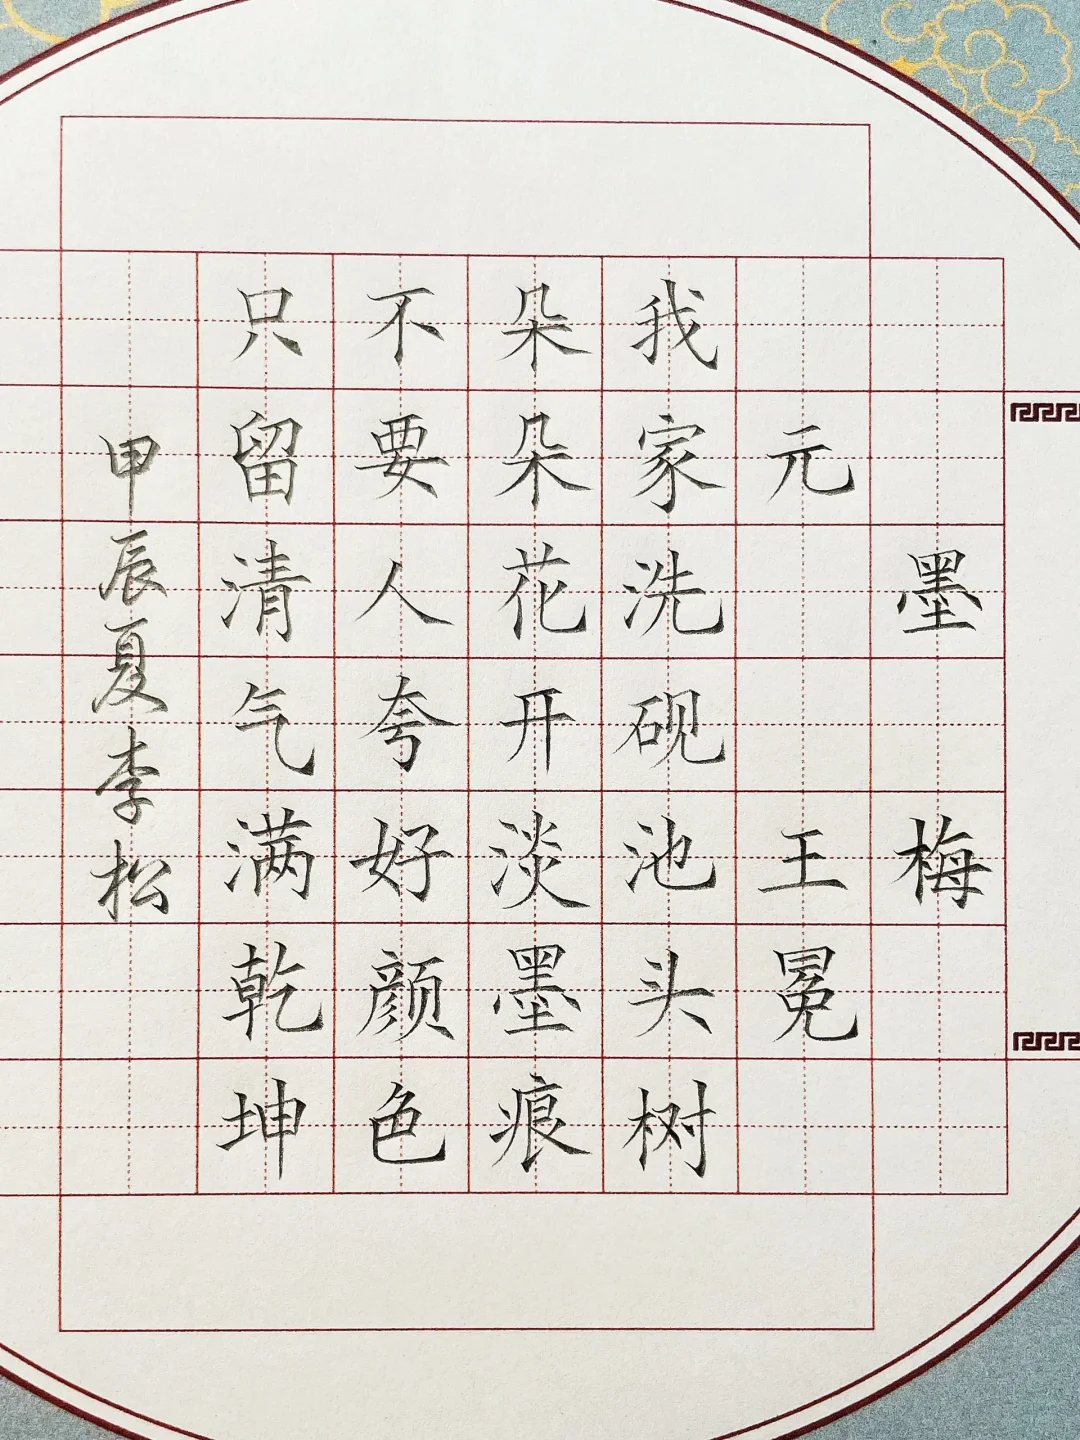 墨梅
元 王冕
我家洗砚池头树
朵朵花开淡墨痕
不要人夸好颜色
只留清气满乾坤
甲辰夏李松